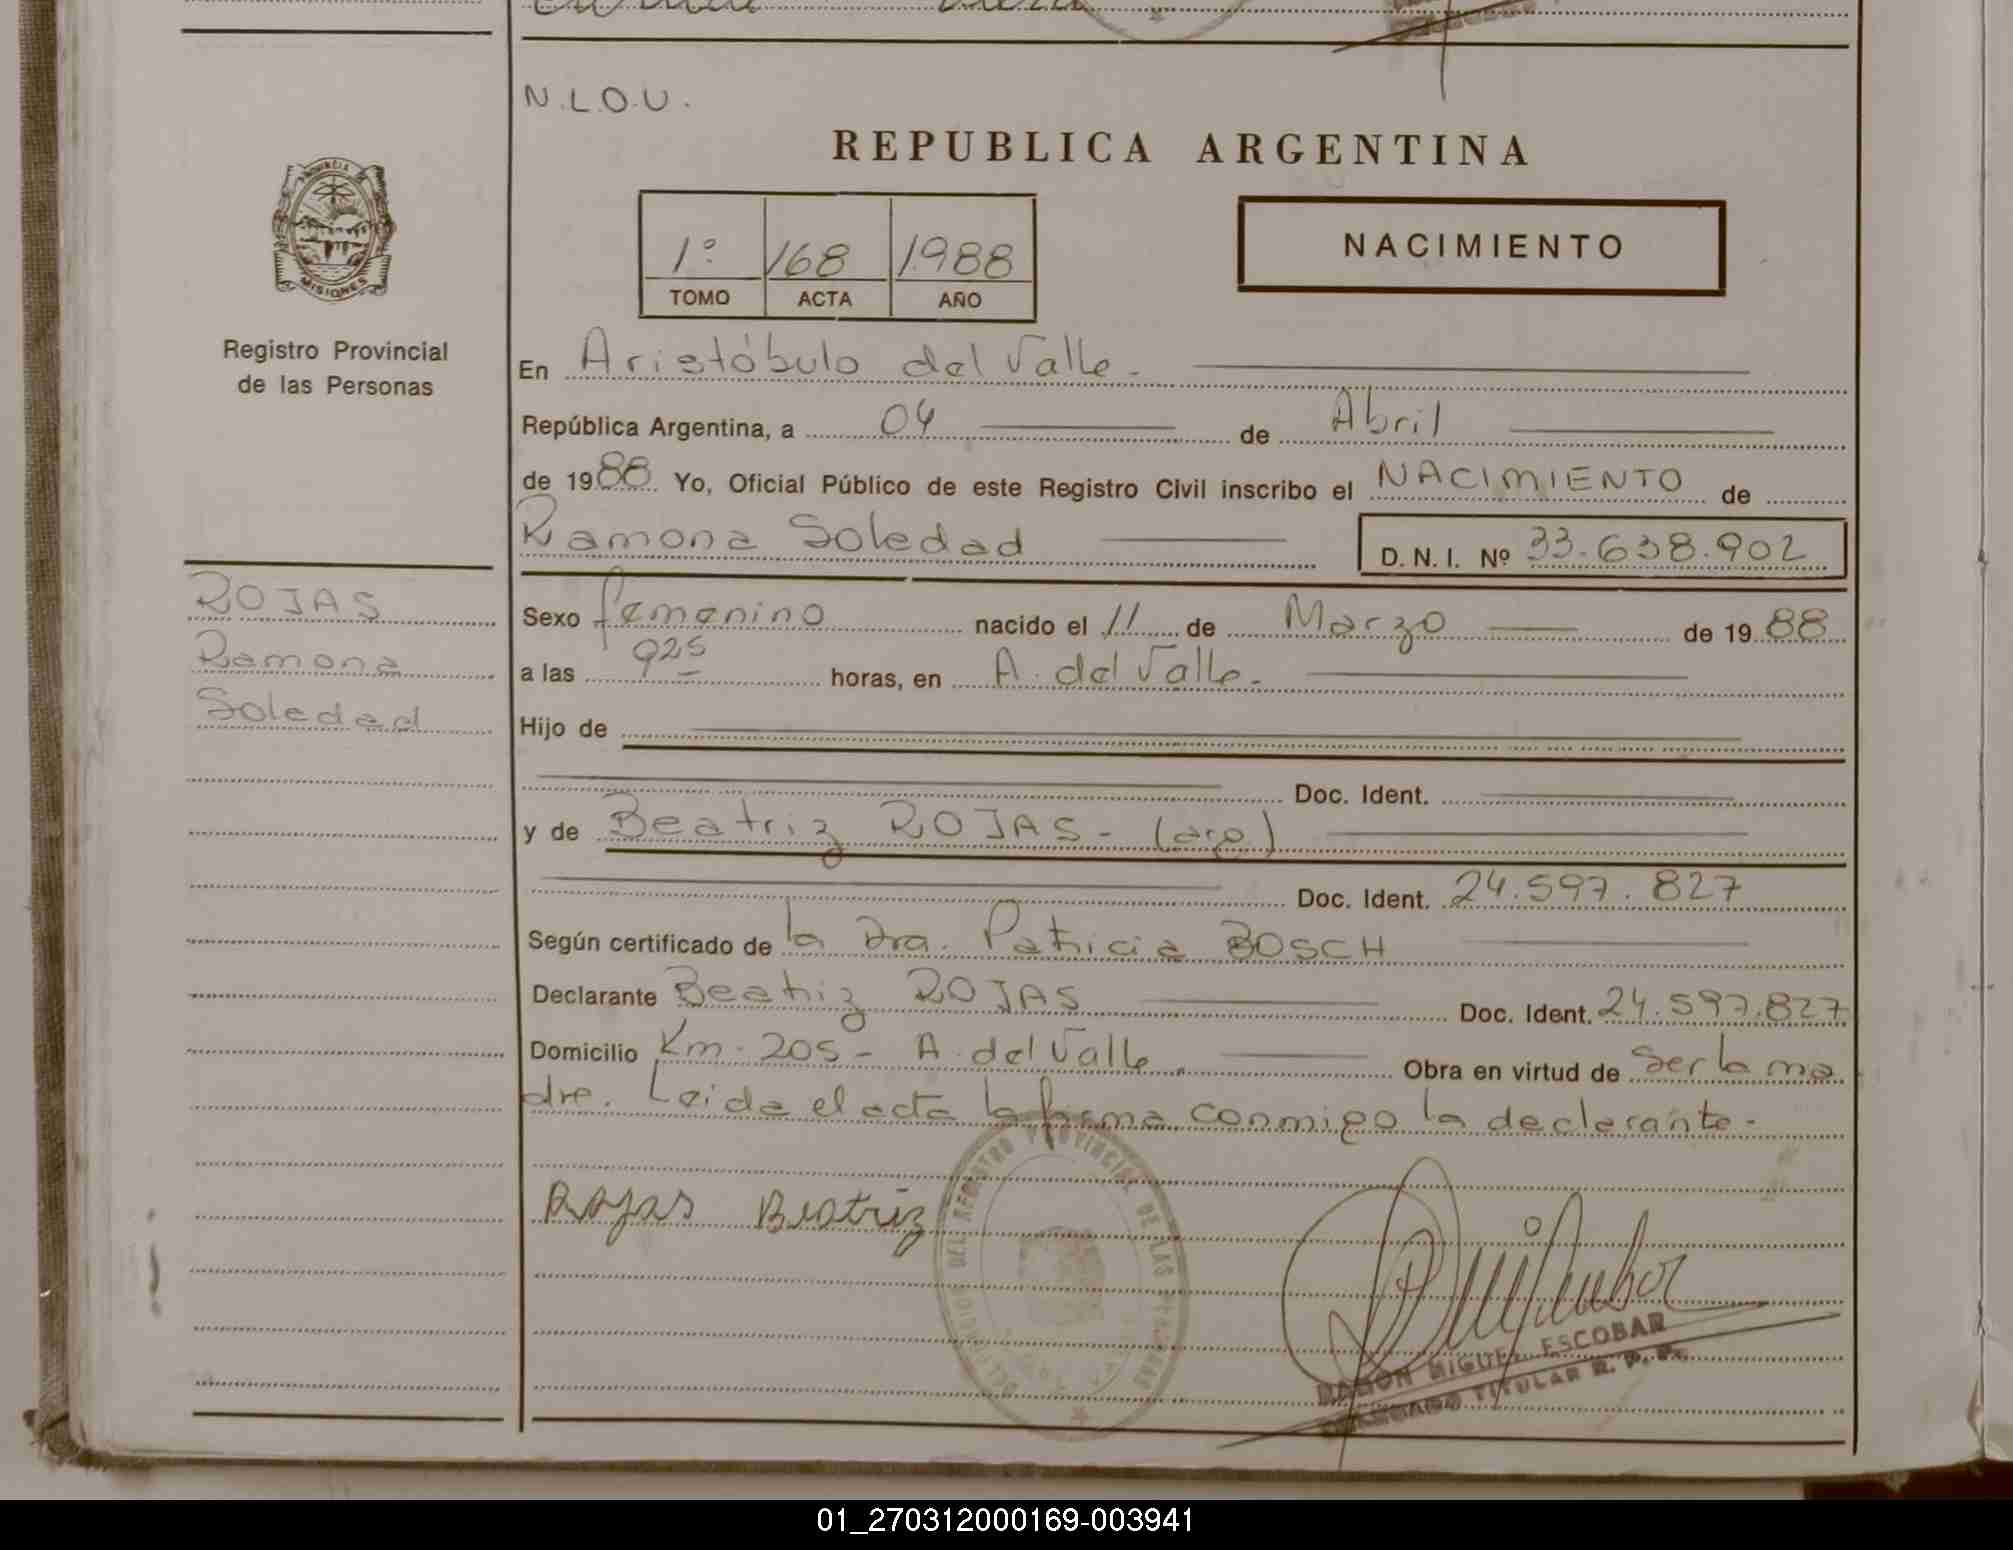 N.L.O.U.
REPUBLICA ARGENTINA
PROVINCIA
MISIONES
1º 168 1988
TOMO ACTA AÑO
NACIMIENTO
Registro Provincial
de las Personas
En Aristóbulo del Valle.
República Argentina, a 04 de Abril
de 1988 Yo, Oficial Público de este Registro Civil inscribo el NACIMIENTO de
Ramona Soledad D. N. I. Nº 33.638.902
ROJAS
Ramona
Soledad
Sexo femenino nacido el 11 de Marzo de 1988
a las 925 horas, en A. del Valle.
Hijo de
Doc. Ident.
y de Beatriz ROJAS - (arg)
Doc. Ident. 24.597.827
Según certificado de la Dra. Patricia BOSCH
Declarante Beatriz ROJAS Doc. Ident. 24.597.827
Domicilio Km. 205 - A. del Valle Obra en virtud de ser la ma
dre. Leida el acta la firma conmigo la declarante.
Rojas Beatriz
DEL REGISTRO PROVINCIAL DE LAS PERSONAS
RAMON MIGUEL ESCOBAR
DELEGADO TITULAR R. P. P.
01_270312000169-003941